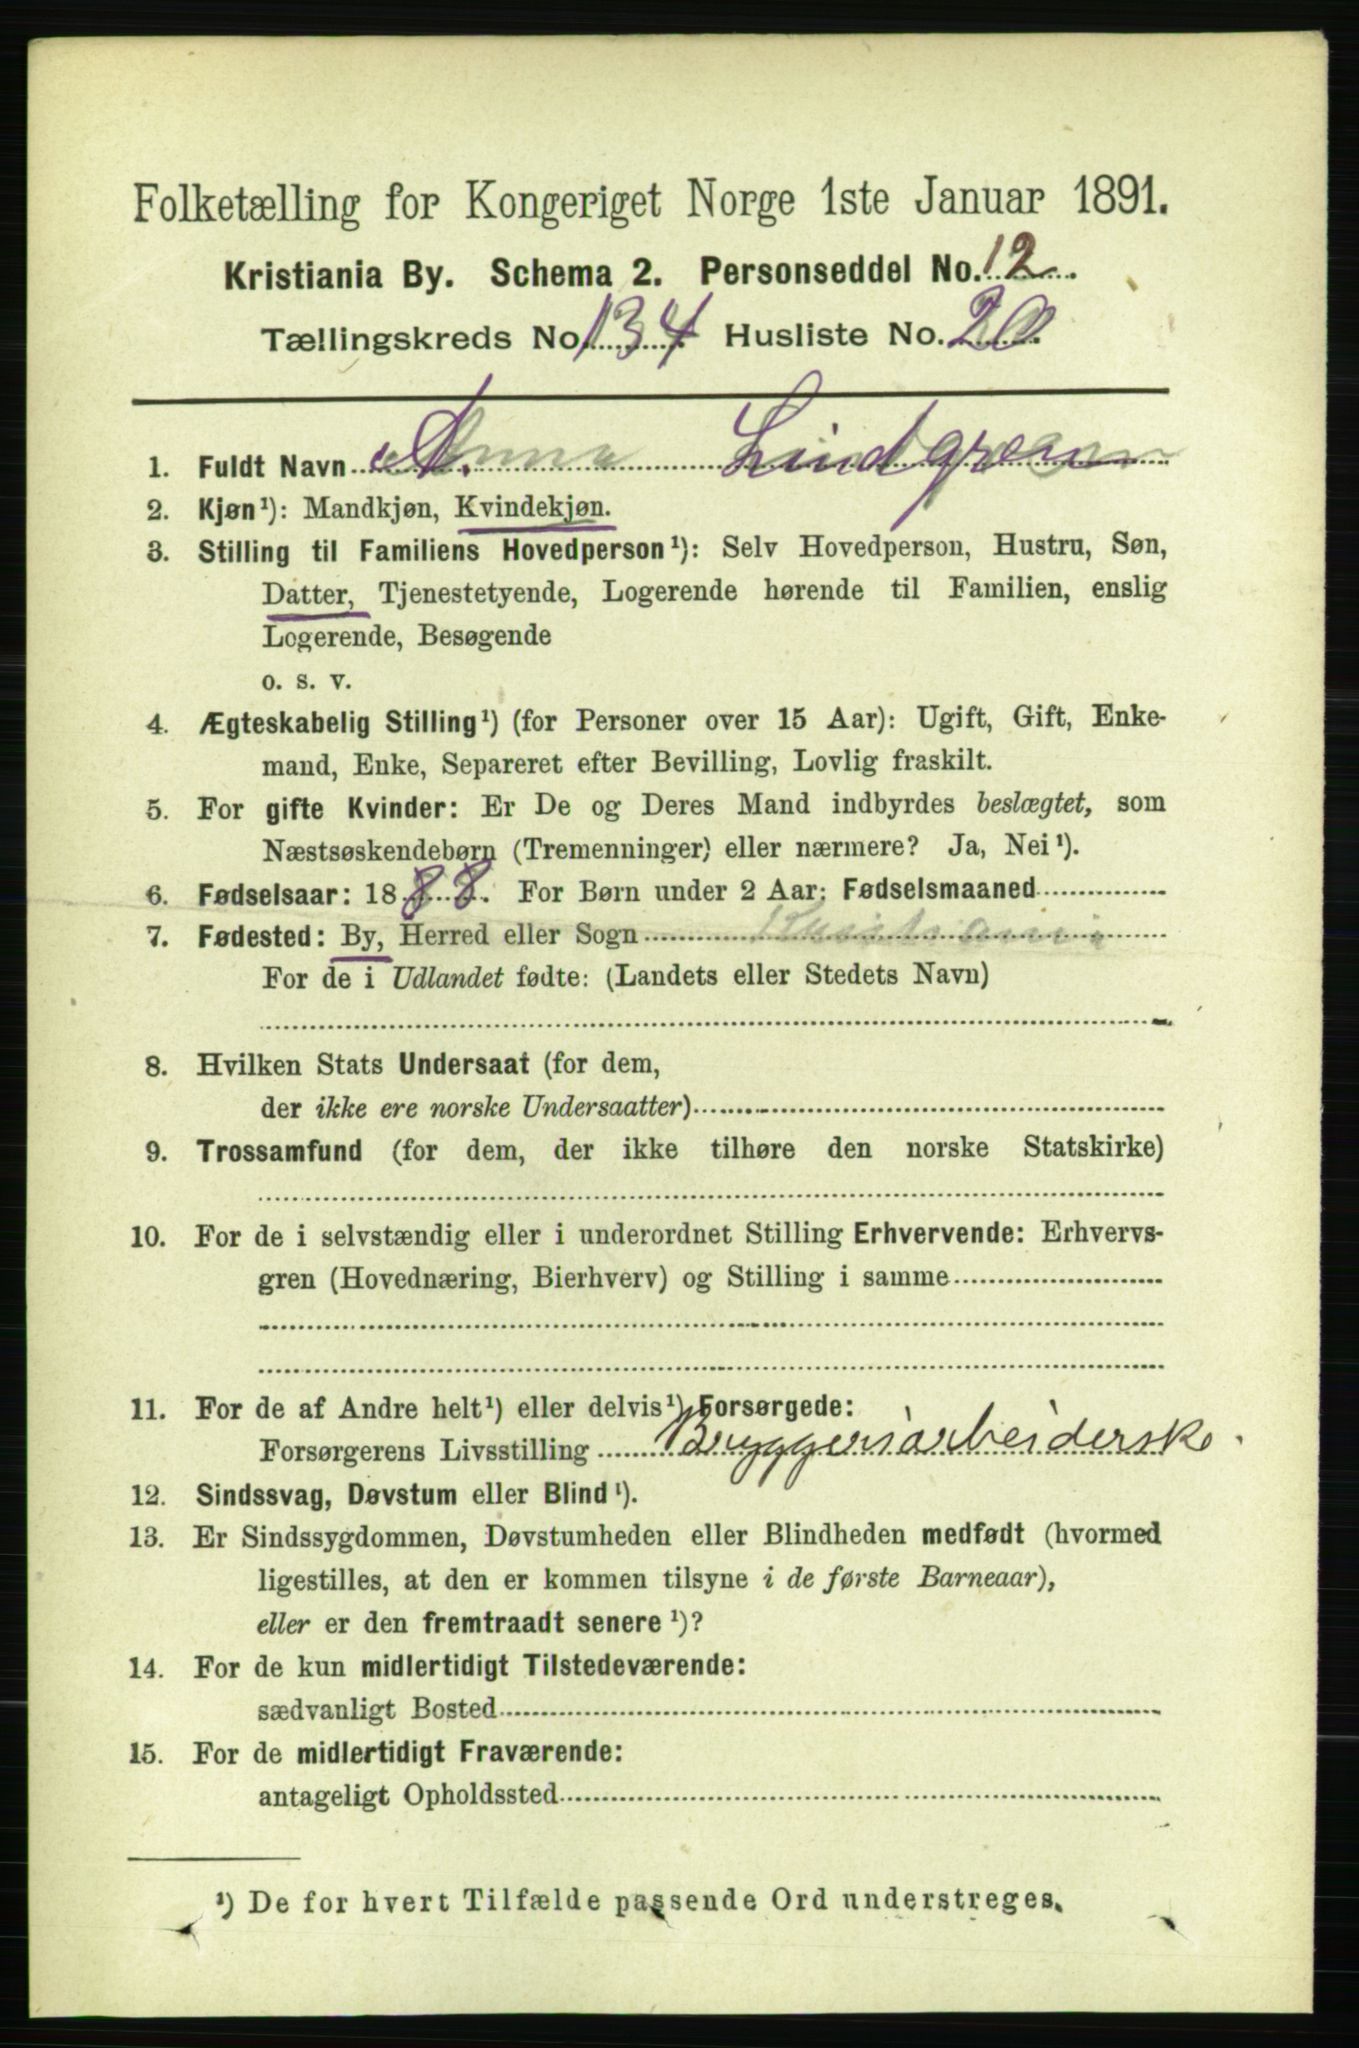 Folketælling for Kongeriget Norge 1ste Januar 1891.
Kristiania By. Schema 2. Personseddel No. 12
Tællingskreds No. 134 Husliste No. 20
1. Fuldt Navn A. Lindgren
2. Kjøn¹): Mandkjøn, Kvindekjøn.
3. Stilling til Familiens Hovedperson¹): Selv Hovedperson, Hustru, Søn,
Datter, Tjenestetyende, Logerende hørende til Familien, enslig
Logerende, Besøgende
o. s. v.
4. Ægteskabelig Stilling¹) (for Personer over 15 Aar): Ugift, Gift, Enke-
mand, Enke, Separeret efter Bevilling, Lovlig fraskilt.
5. For gifte Kvinder: Er De og Deres Mand indbyrdes beslægtet, som
Næstsøskendebørn (Tremenninger) eller nærmere? Ja, Nei¹).
6. Fødselsaar: 1888. For Børn under 2 Aar: Fødselsmaaned
7. Fødested: By, Herred eller Sogn Kristiania
For de i Udlandet fødte: (Landets eller Stedets Navn)
8. Hvilken Stats Undersaat (for dem,
der ikke ere norske Undersaatter)
9. Trossamfund (for dem, der ikke tilhøre den norske Statskirke)
10. For de i selvstændig eller i underordnet Stilling Erhvervende: Erhvervs-
gren (Hovednæring, Bierhverv) og Stilling i samme
11. For de af Andre helt¹) eller delvis¹) Forsørgede:
Forsørgerens Livsstilling Bryggeriarbeiderske.
12. Sindssvag, Døvstum eller Blind¹).
13. Er Sindssygdommen, Døvstumheden eller Blindheden medfødt (hvormed
ligestilles, at den er kommen tilsyne i de første Barneaar),
eller er den fremtraadt senere¹)?
14. For de kun midlertidigt Tilstedeværende:
sædvanligt Bosted
15. For de midlertidigt Fraværende:
antageligt Opholdssted
¹) De for hvert Tilfælde passende Ord understreges.